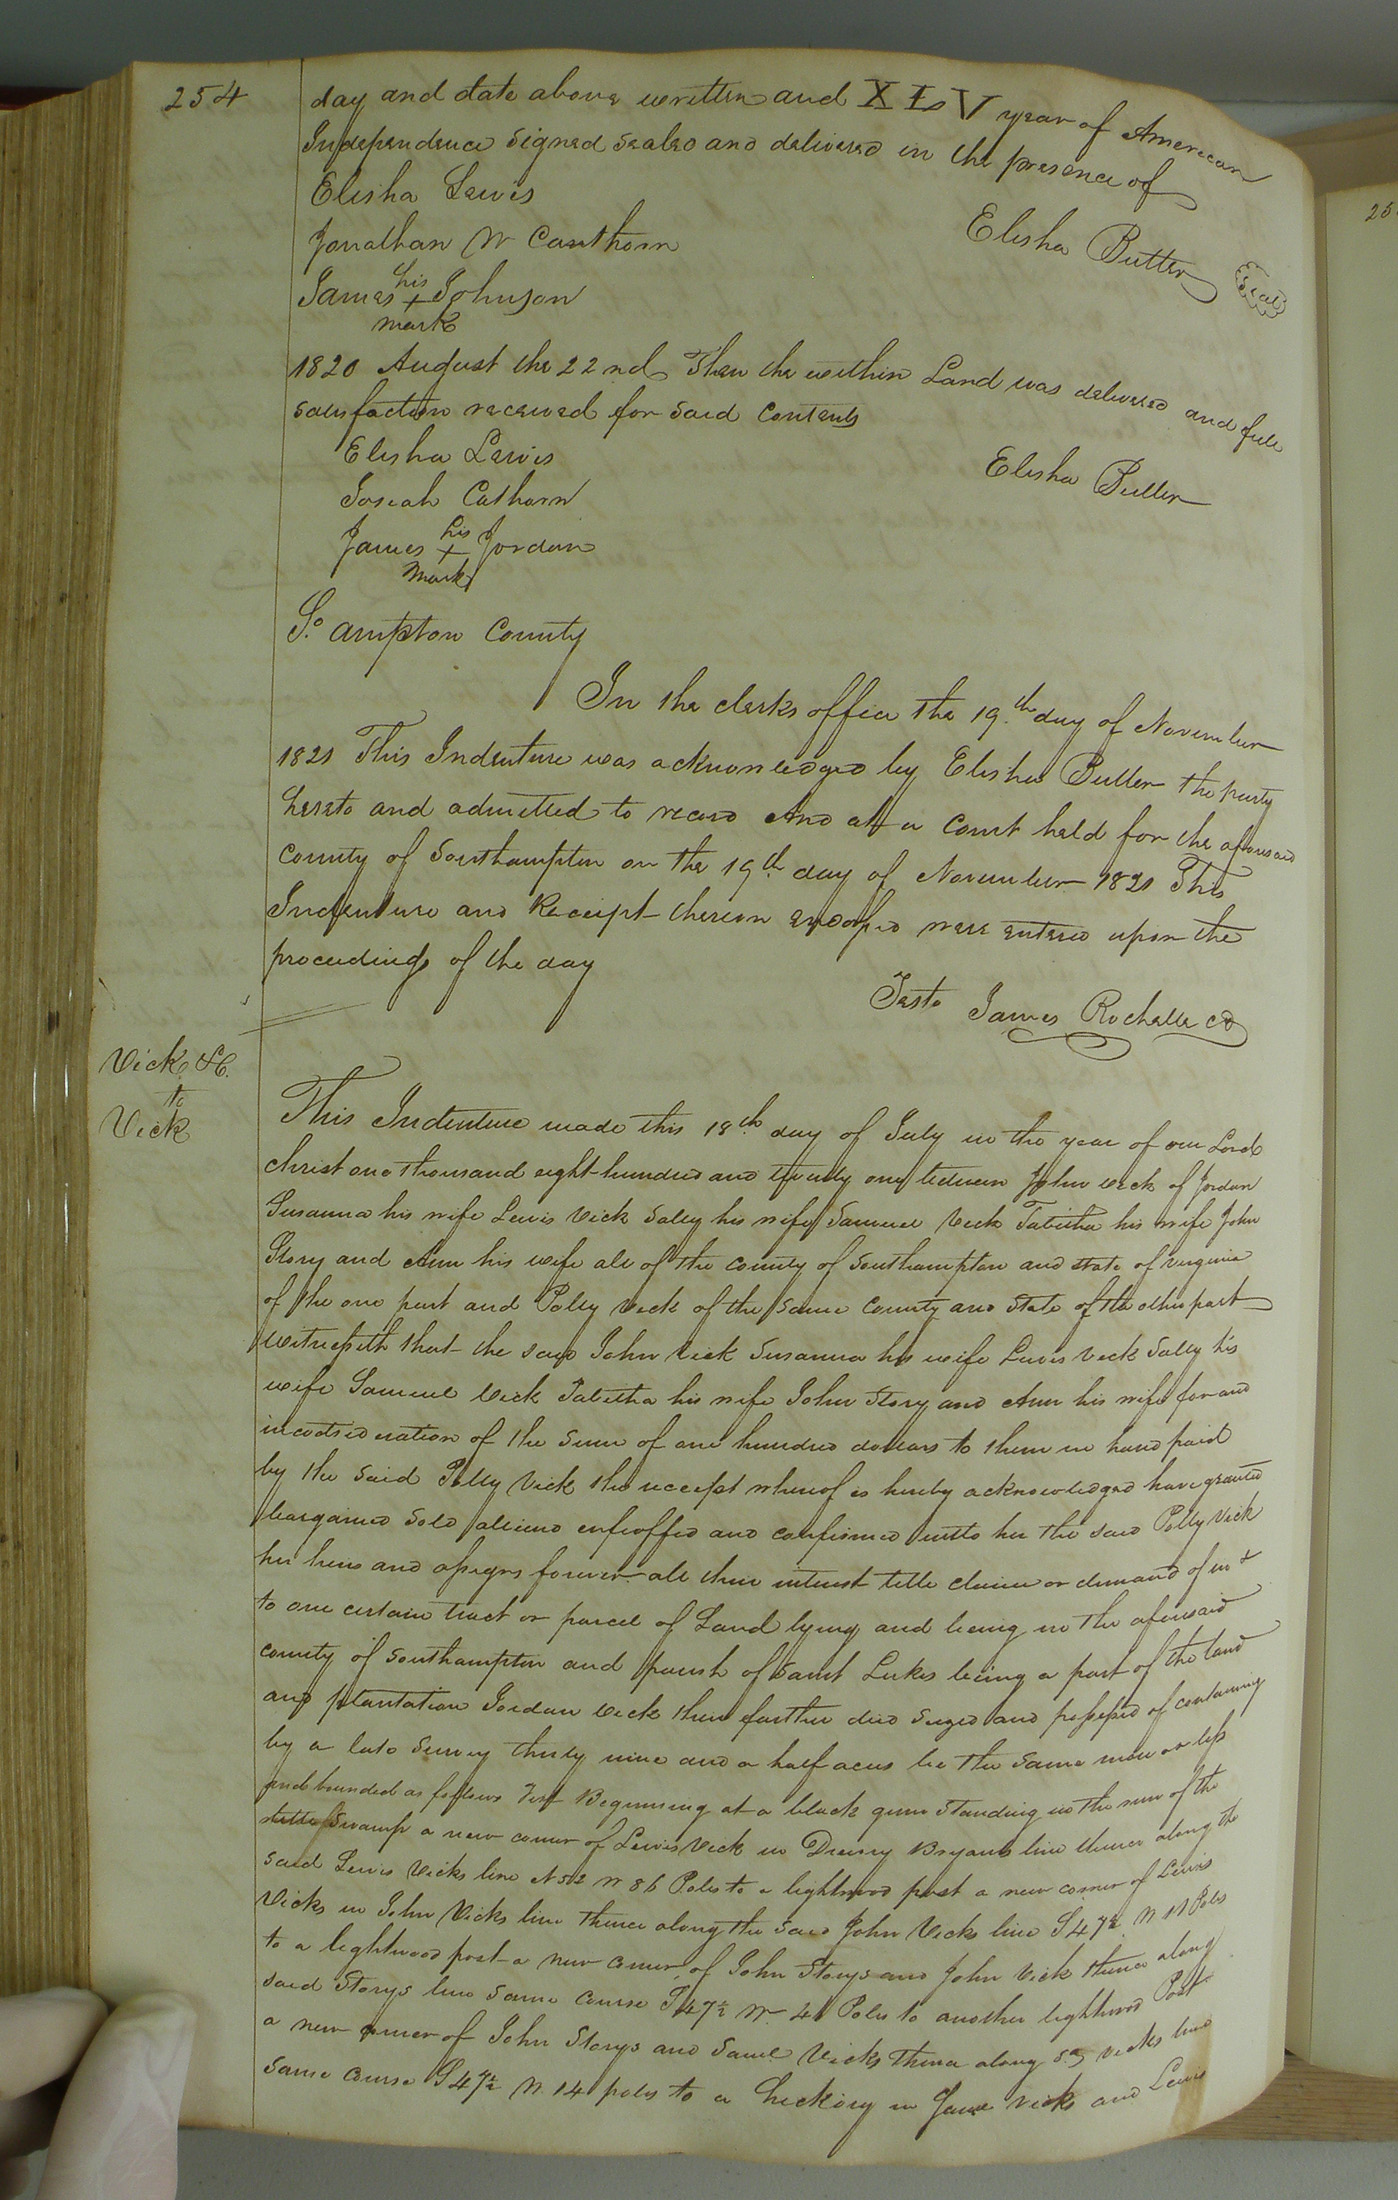 254
day and date above written and XLV year of American
Independence Signed Sealed and delivered in the presence of
Elisha Lewis
Elisha Butler Seal
Jonathan W Cawthorn
James his x mark Johnson
1820 August the 22nd Then the within Land was delivered and full
satisfaction received for said Contents
Elisha Lewis
Elisha Butler
Josiah Cathorn
James his + mark Jordan
So. ampton County
In the clerks office the 19th day of November
1821 This Indenture was acknowledged by Elisha Butler the party
hereto and admitted to record And at a Court held for the aforesaid
County of Southampton on the 19th day of November 1821 This
Indenture and Receipt thereon endorsed were entered upon the
proceedings of the day
Teste James Rochelle CC
Vick &C.
to
Vick
This Indenture made this 18th day of July in the year of our Lord
Christ one thousand eight hundred and twenty one between John Vick of Jordan
Susanna his wife Lewis Vick Sally his wife Samuel Vick Tabitha his wife John
Story and Ann his wife all of the County of Southampton and state of virginia
of the one part and Polly Vick of the same County and State of the other part
witnesseth that the said John Vick Susanna his wife Lewis Vick Sally his
wife Samuel Vick Tabitha his wife John Story and Ann his wife for and
in consideration of the sum of one hundred dollars to them in hand paid
by the said Polly Vick the receipt whereof is hereby acknowledged have granted
bargained sold aliened enfeoffed and confirmed unto her the said Polly Vick
her heirs and assigns forever all their interest title claim or demand of in &
to one certain tract or parcel of Land lying and being in the aforesaid
county of Southampton and parish of Saint Lukes being a part of the land
and plantation Jordan Vick their farther died seized and possessed of containing
by a late survey thirty nine and a half acres be the same more or less
and bounded as follows Beginning at a black gum standing in the run of the
little Swamp a new corner of Lewis Vick in Drewry Bryans line thence along the
said Lewis Vicks line N52 W 86 Poles to a lightwood post a new corner of Lewis
Vicks in John Vicks line thence along the said John Vicks line S47½ W 11 Poles
to a lightwood post a new corner of John Storys and John Vick thence along
said Storys line same course S47½ W 41 Poles to another lightwood Post
a new corner of John Storys and Saml Vicks thence along sd Vicks line
same course S47½ W. 14 poles to a hickory in Vicks and Lewis